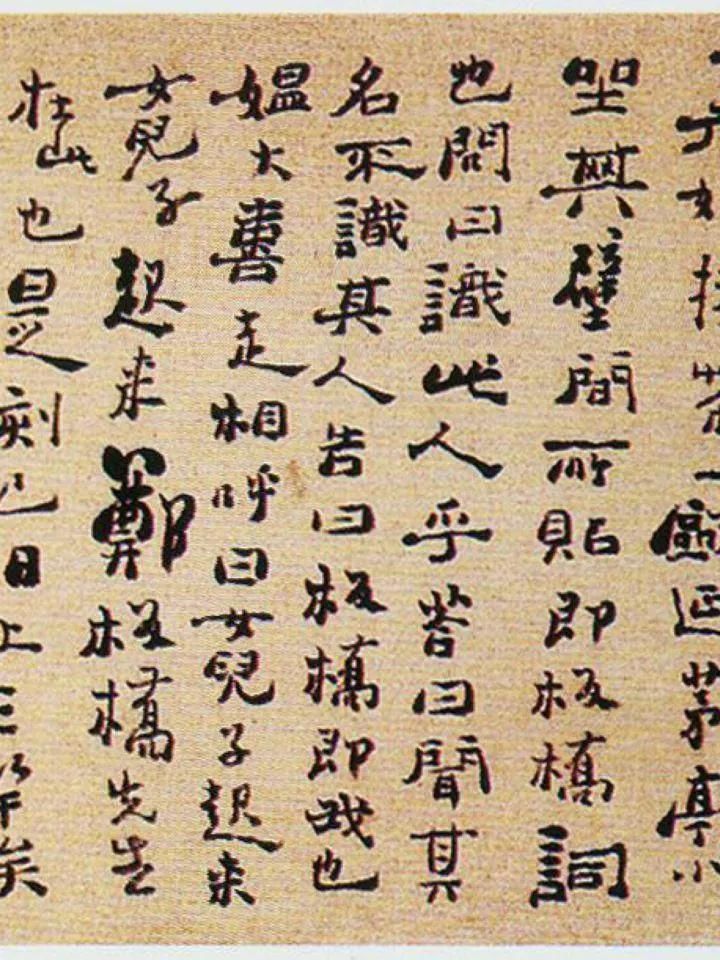 捧茶一甌延茅亭小
坐其壁間所貼即板橋詞
也問曰識此人乎答曰聞其
名不識其人告曰板橋即我也
媼大喜走相呼曰女兒子起來
女兒子起來鄭板橋先生
在此也是刻已日上三竿矣